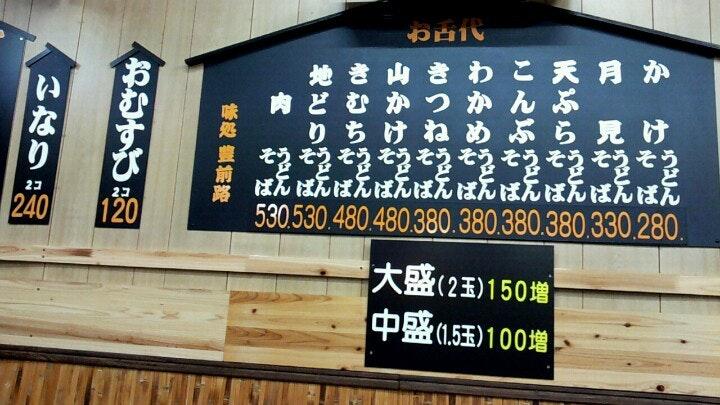 お舌代
かけ うどん そば 280.
月見 うどん そば 330.
天ぷら うどん そば 380.
こんぶ うどん そば 380.
わかめ うどん そば 380.
きつね うどん そば 380.
山かけ うどん そば 480.
きむち うどん そば 480.
地どり うどん そば 530.
肉 うどん そば 530.
味処 豊前路
おむすび 2コ 120
いなり 2コ 240
大盛(2玉)150増
中盛(1.5玉)100増